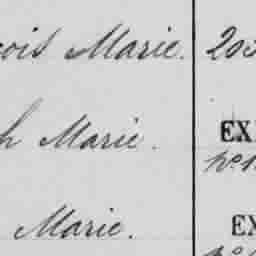 ois Marie. 20
h Marie. EX
Marie. EX